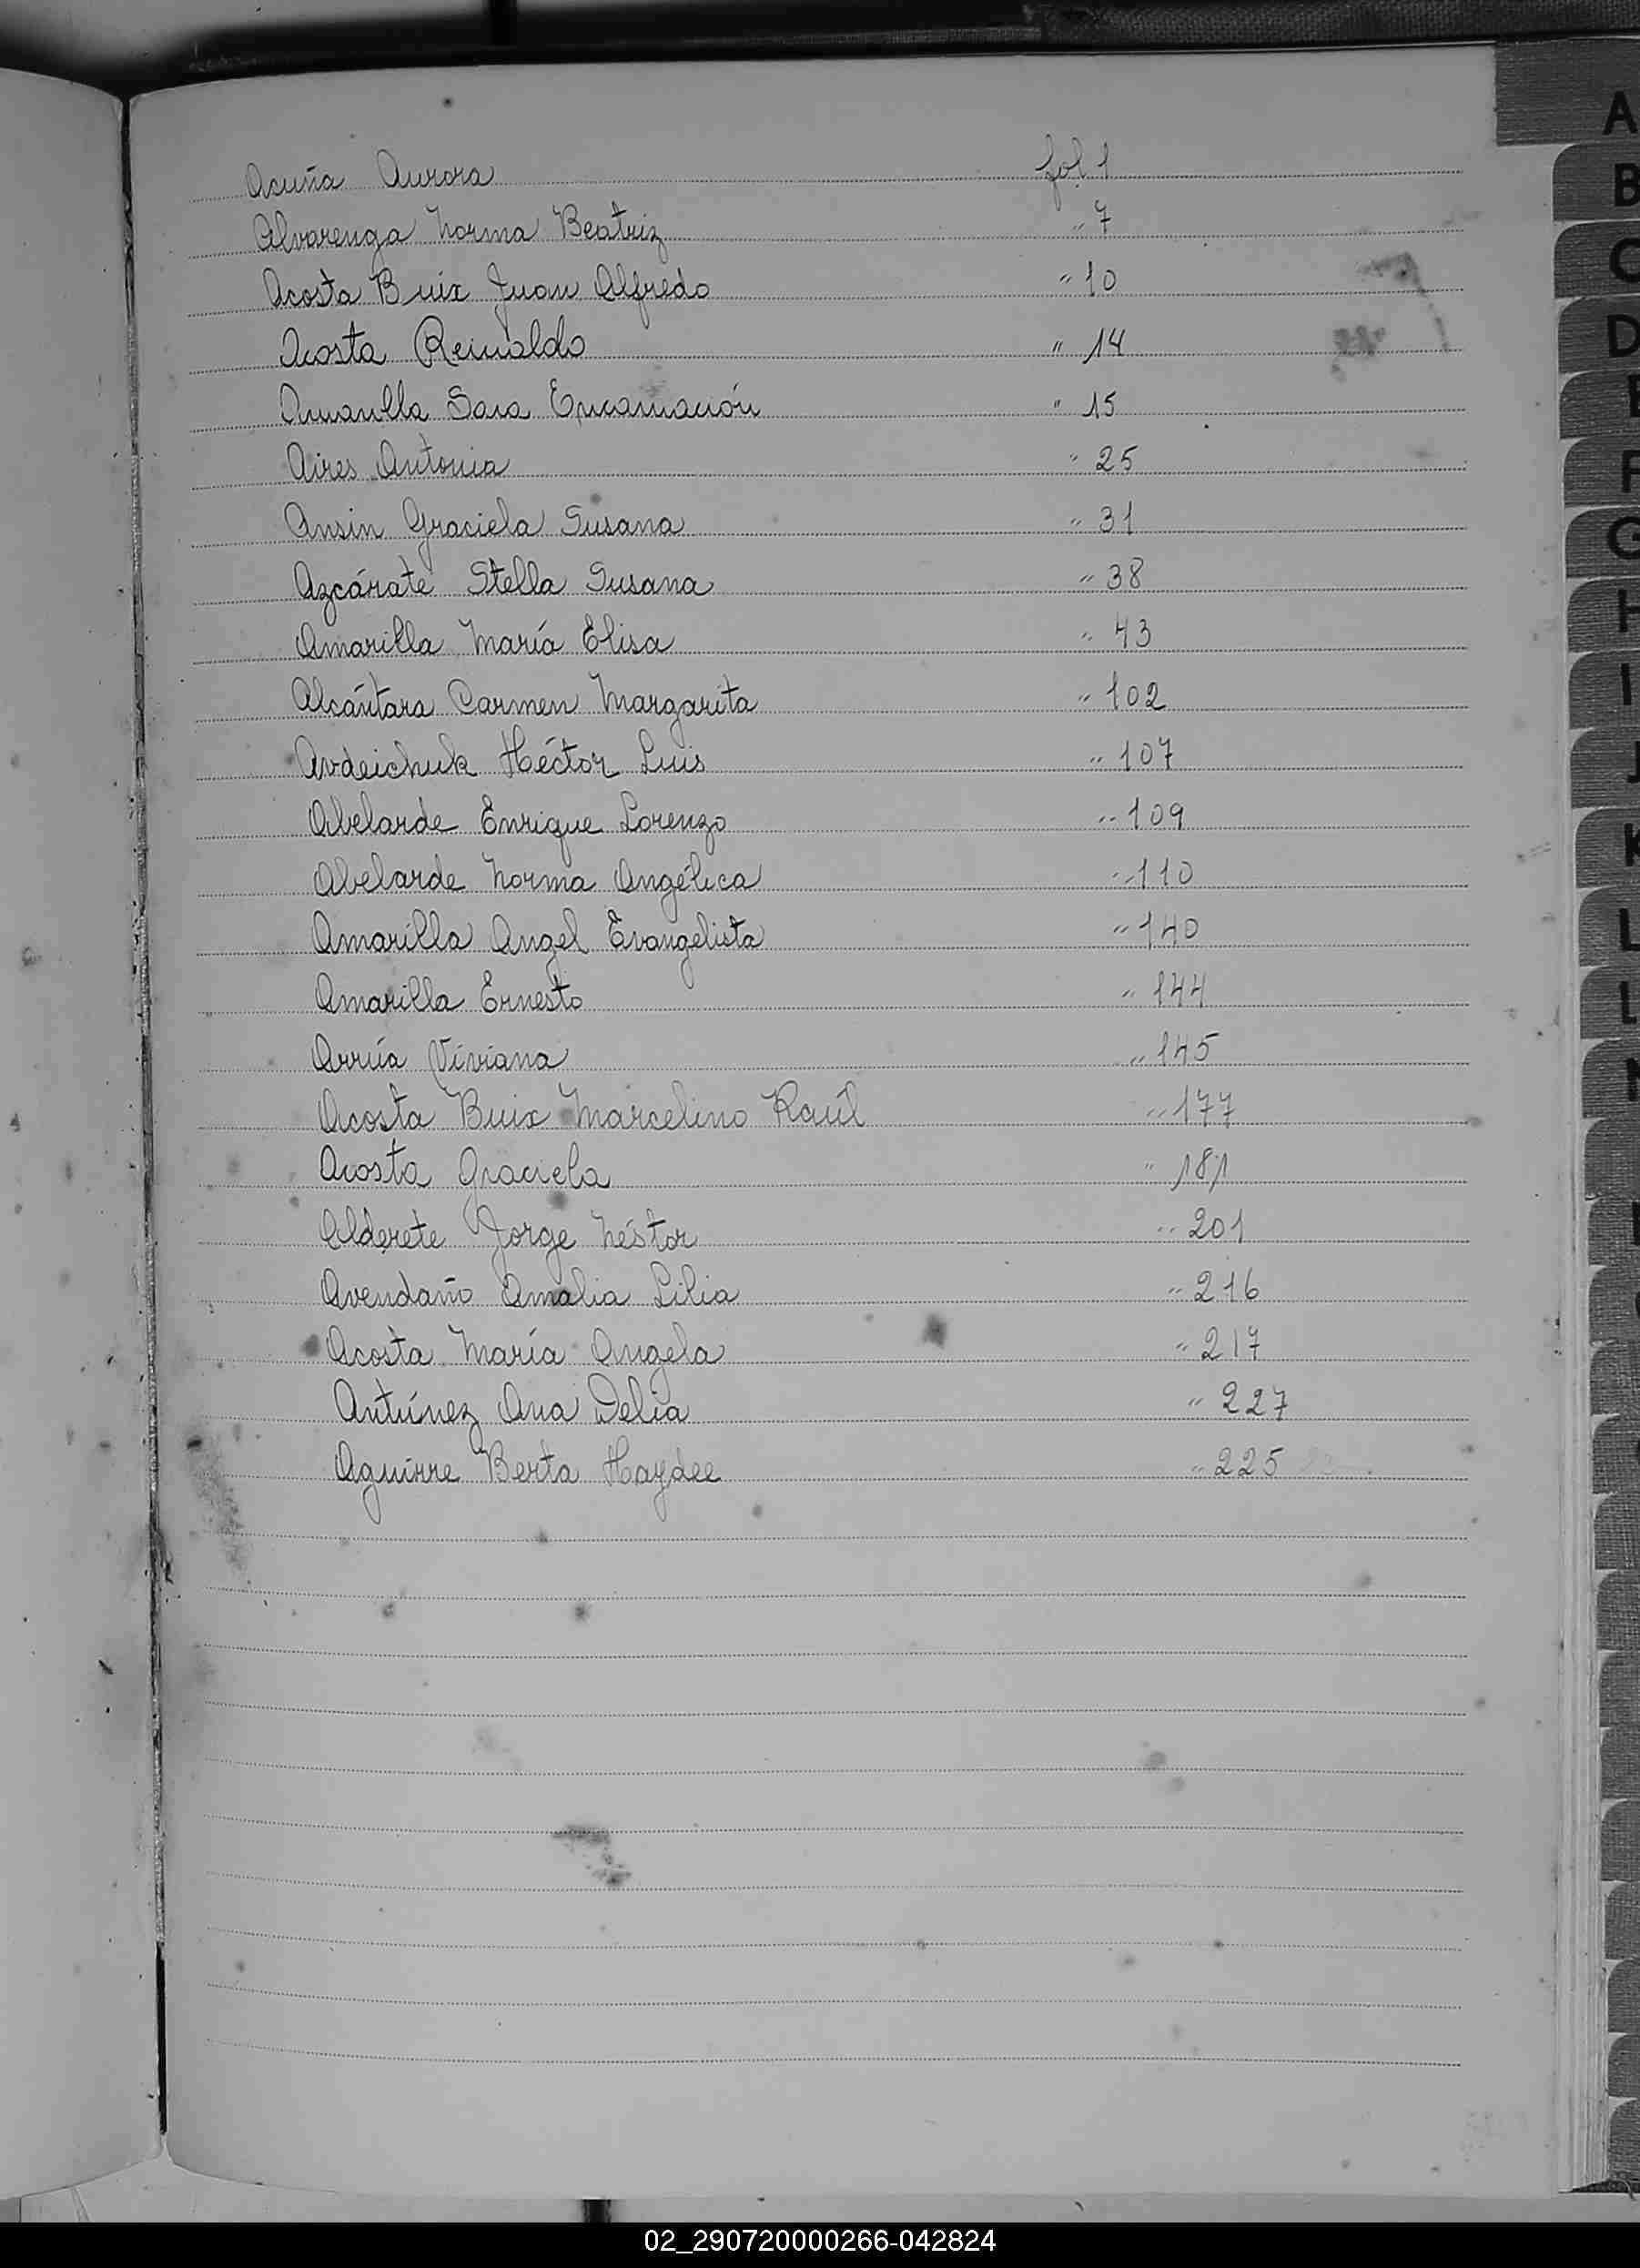 Acuña Aurora fol 1
Alvarenga Norma Beatriz " 7
Acosta Buix Juan Alfredo " 10
Acosta Reinaldo " 14
Amarilla Sara Encarnación " 15
Aires Antonia " 25
Ansin Graciela Susana " 31
Azcárate Stella Susana " 38
Amarilla María Elisa " 43
Alcántara Carmen Margarita " 102
Avdeichuk Héctor Luis " 107
Abelarde Enrique Lorenzo " 109
Abelarde Norma Angélica " 110
Amarilla Angel Evangelista " 140
Amarilla Ernesto " 144
Arrúa Viviana " 145
Acosta Buix Marcelino Raúl " 177
Acosta Graciela " 181
Alderete Jorge Néstor " 201
Avendaño Amalia Lilia " 216
Acosta María Angela " 217
Antúnez Ana Delia " 227
Aguirre Berta Haydee " 225
A
B
C
D
E
F
G
H
I
J
K
L
02_290720000266-042824